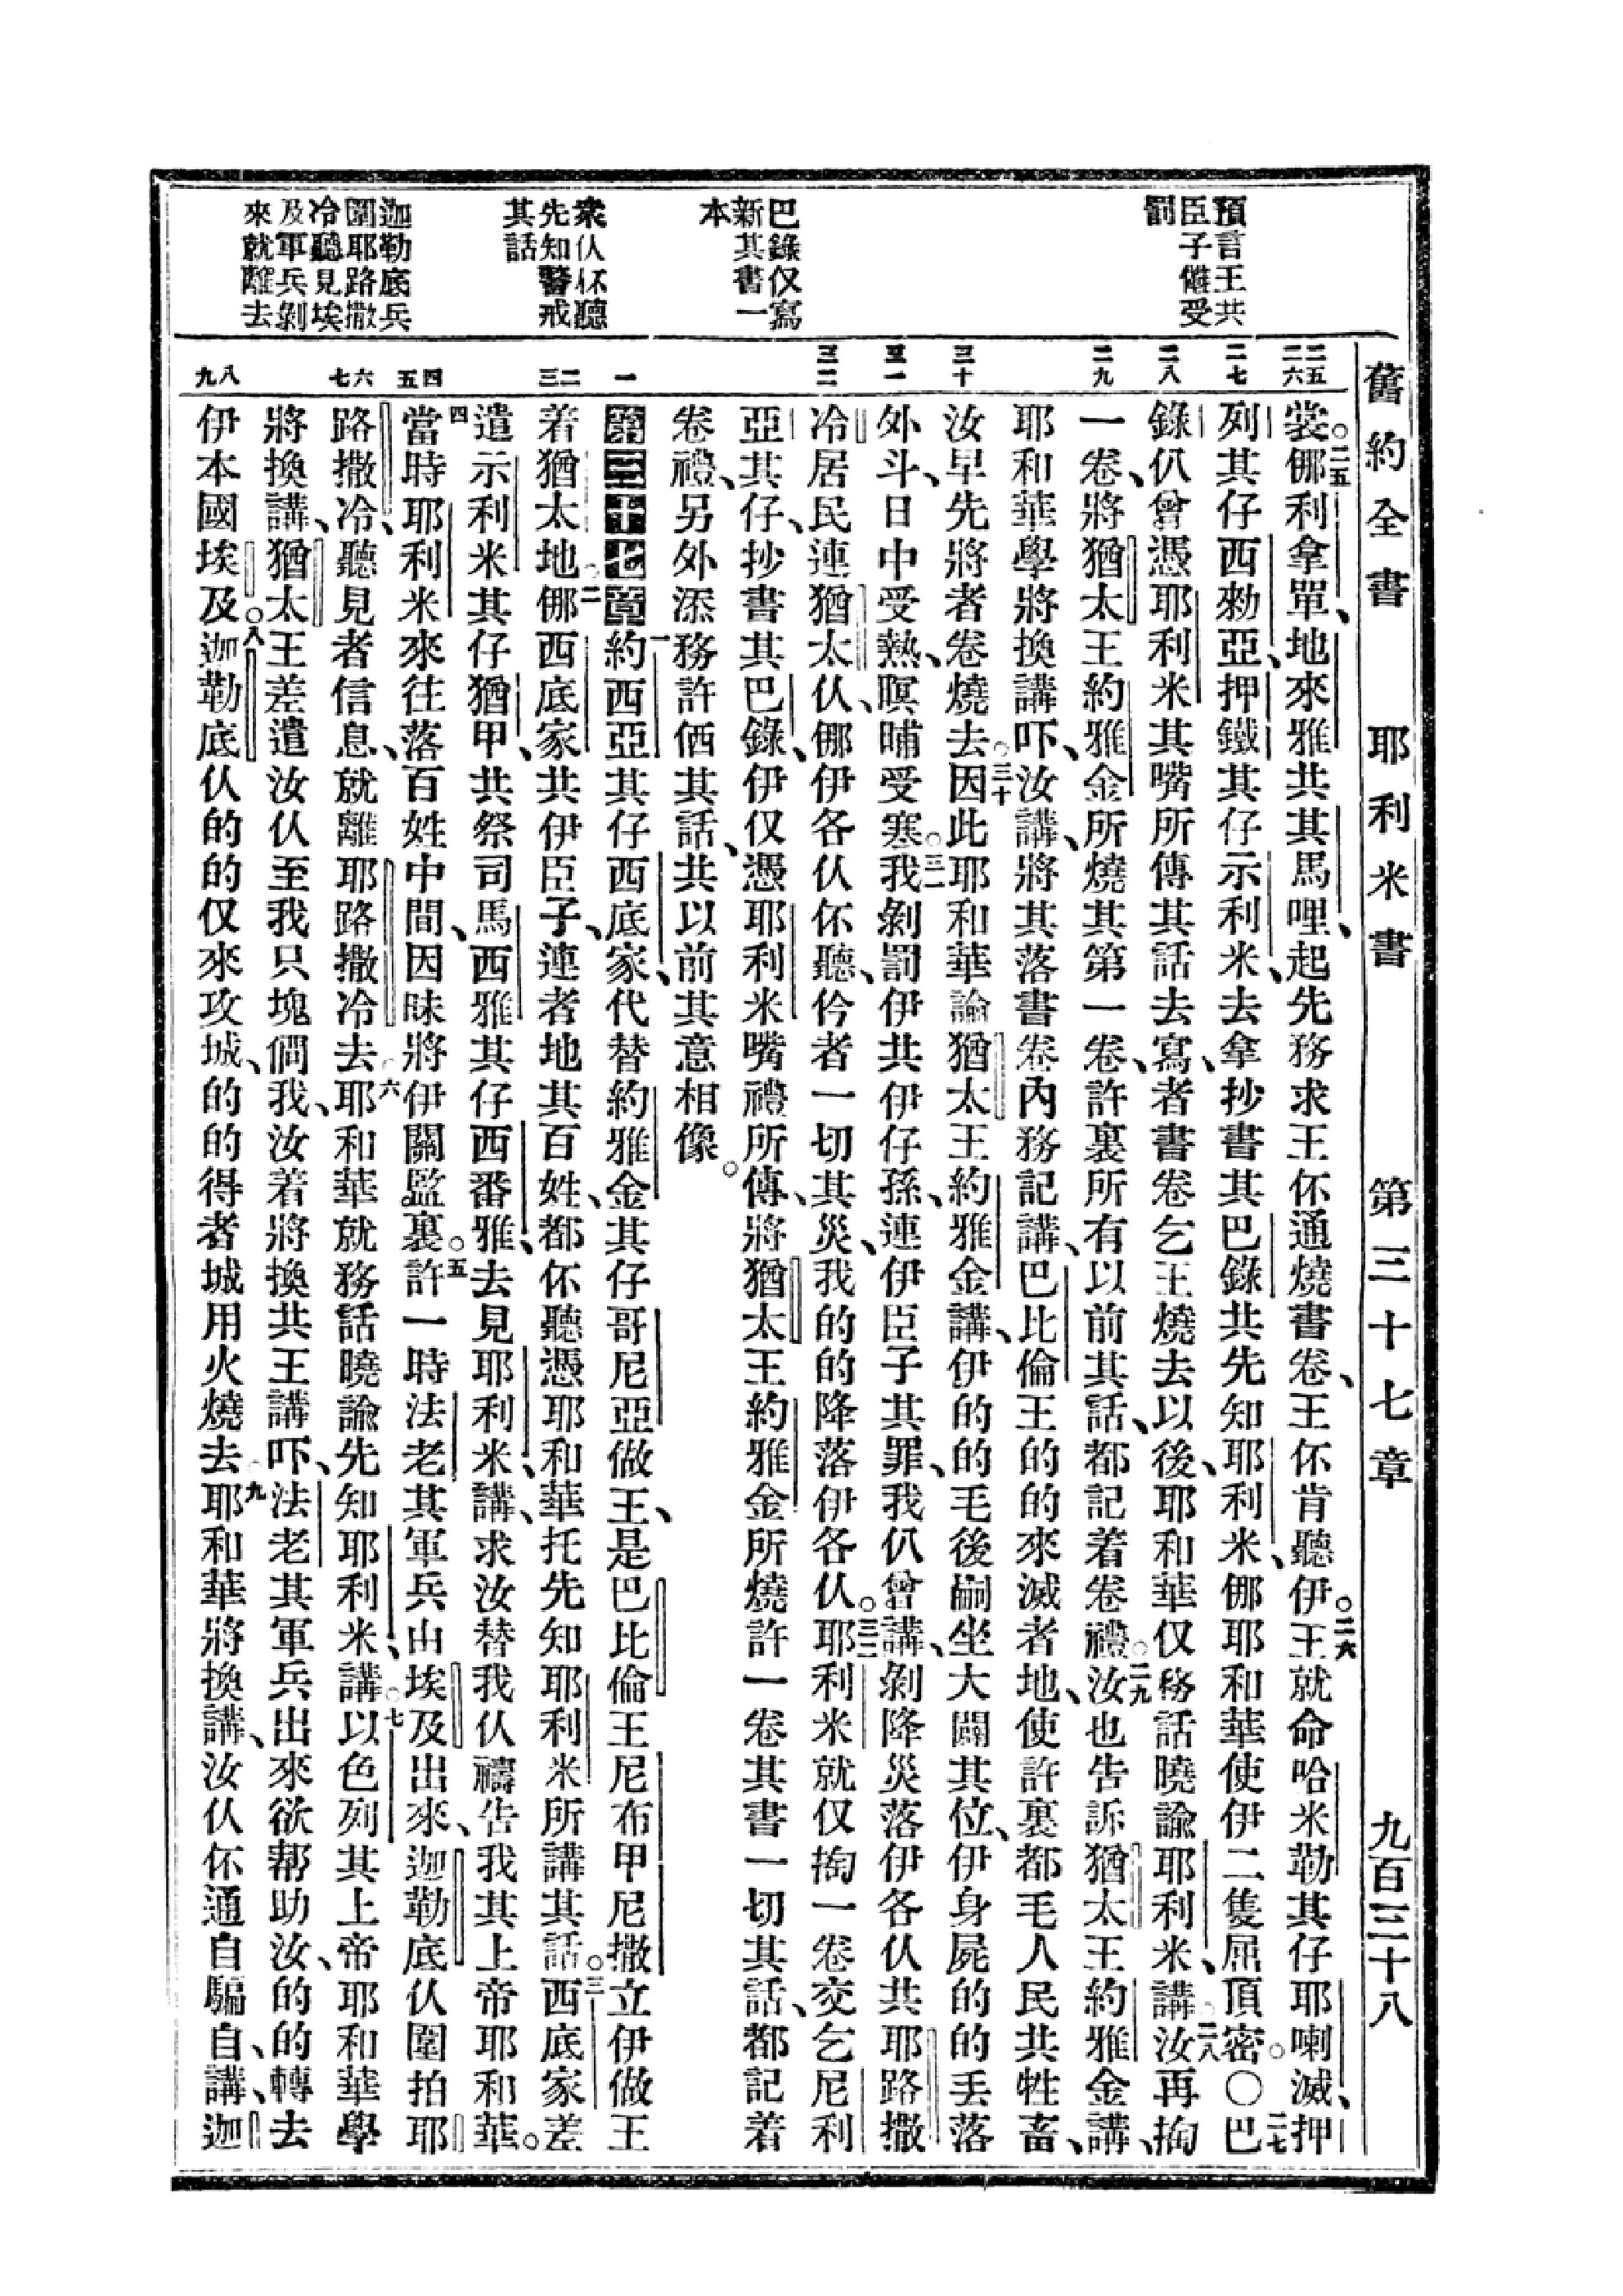 舊約全書 耶利米書 第三十七章 九百三十八
預言王共
臣子儺受
罰
巴錄仅寫
新其書一
本
衆仫伓聽
先知警戒
其話
迦勒底兵
圍耶路撒
冷聽見埃
及軍兵剝
來就離去
二五
二六
二七
二八
二九
三十
三一
三二
一
二
三
四
五
六
七
八
九
裳。二五㑚利拿單、地來雅共其馬哩、起先務求王伓通燒書卷、王伓肯聽伊。二六王就命哈米勒其仔耶喇滅、押
列其仔西勑亞、押鐵其仔示利米、去拿抄書其巴錄共先知耶利米、㑚耶和華使伊二隻屈頂密。〇二七巴
錄仈曾憑耶利米其嘴所傳其話去寫、者書卷乞王燒去以後、耶和華仅務話曉諭耶利米、講。二八汝再掏
一卷、將猶太王約雅金所燒其第一卷、許裏所有以前其話、都記着卷禮。二九汝也告訴猶太王約雅金講、
耶和華學將換講吓、汝講、將其落書卷內務記講、巴比倫王的的來滅者地、使許裏都毛人民共牲畜、
汝早先將者卷燒去。三十因此耶和華諭猶太王約雅金講、伊的的毛後嗣坐大闢其位、伊身屍的的丟落
外斗、日中受熱、暝晡受寒。三一我剝罰伊共伊仔孫、連伊臣子其罪、我仈曾講、剝降災落伊各仫共耶路撒
冷居民連猶太仫、㑚伊各仫伓聽、仱者一切其災、我的的降落伊各仫。三二耶利米就仅掏一卷交乞尼利
亞其仔、抄書其巴錄、伊仅憑耶利米嘴禮所傳、將猶太王約雅金所燒許一卷其書一切其話、都記着
卷禮、另外添務許㐽其話、共以前其意相像。
第三十七章 一約西亞其仔西底家、代替約雅金其仔哥尼亞做王、是巴比倫王尼布甲尼撒立伊做王
着猶太地。二㑚西底家共伊臣子、連者地其百姓、都伓聽憑耶和華托先知耶利米所講其話。三西底家差
遣示利米其仔猶甲、共祭司馬西雅其仔西番雅、去見耶利米、講、求汝替我仫禱告我其上帝耶和華。
四當時耶利米來往落百姓中間、因昧將伊關監裏。五許一時法老其軍兵由埃及出來、迦勒底仫圍拍耶
路撒冷、聽見者信息、就離耶路撒冷去。六耶和華就務話曉諭先知耶利米、講。七以色列其上帝耶和華學
將換講、猶太王差遣汝仫至我只塊倜我、汝着將換共王講吓、法老其軍兵出來欲幫助汝、的的轉去
伊本國埃及。八迦勒底仫的的仅來攻城、的的得者城用火燒去。九耶和華將換講、汝仫伓通自騙自、講、迦